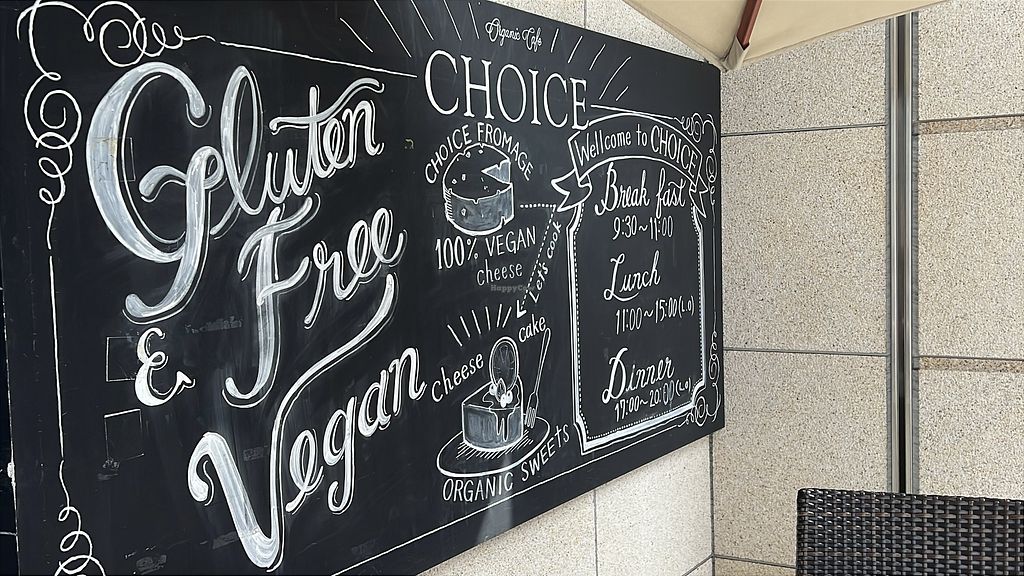 Gluten
Free
&
Vegan
Organic Café
CHOICE
CHOICE FROMAGE
100% VEGAN
cheese
Let's cook
cheese cake
ORGANIC SWEETS
Welcome to CHOICE!
Break fast
9:30~11:00
Lunch
11:00~15:00(L.O)
Dinner
17:00~20:00(L.O)
HappyCow